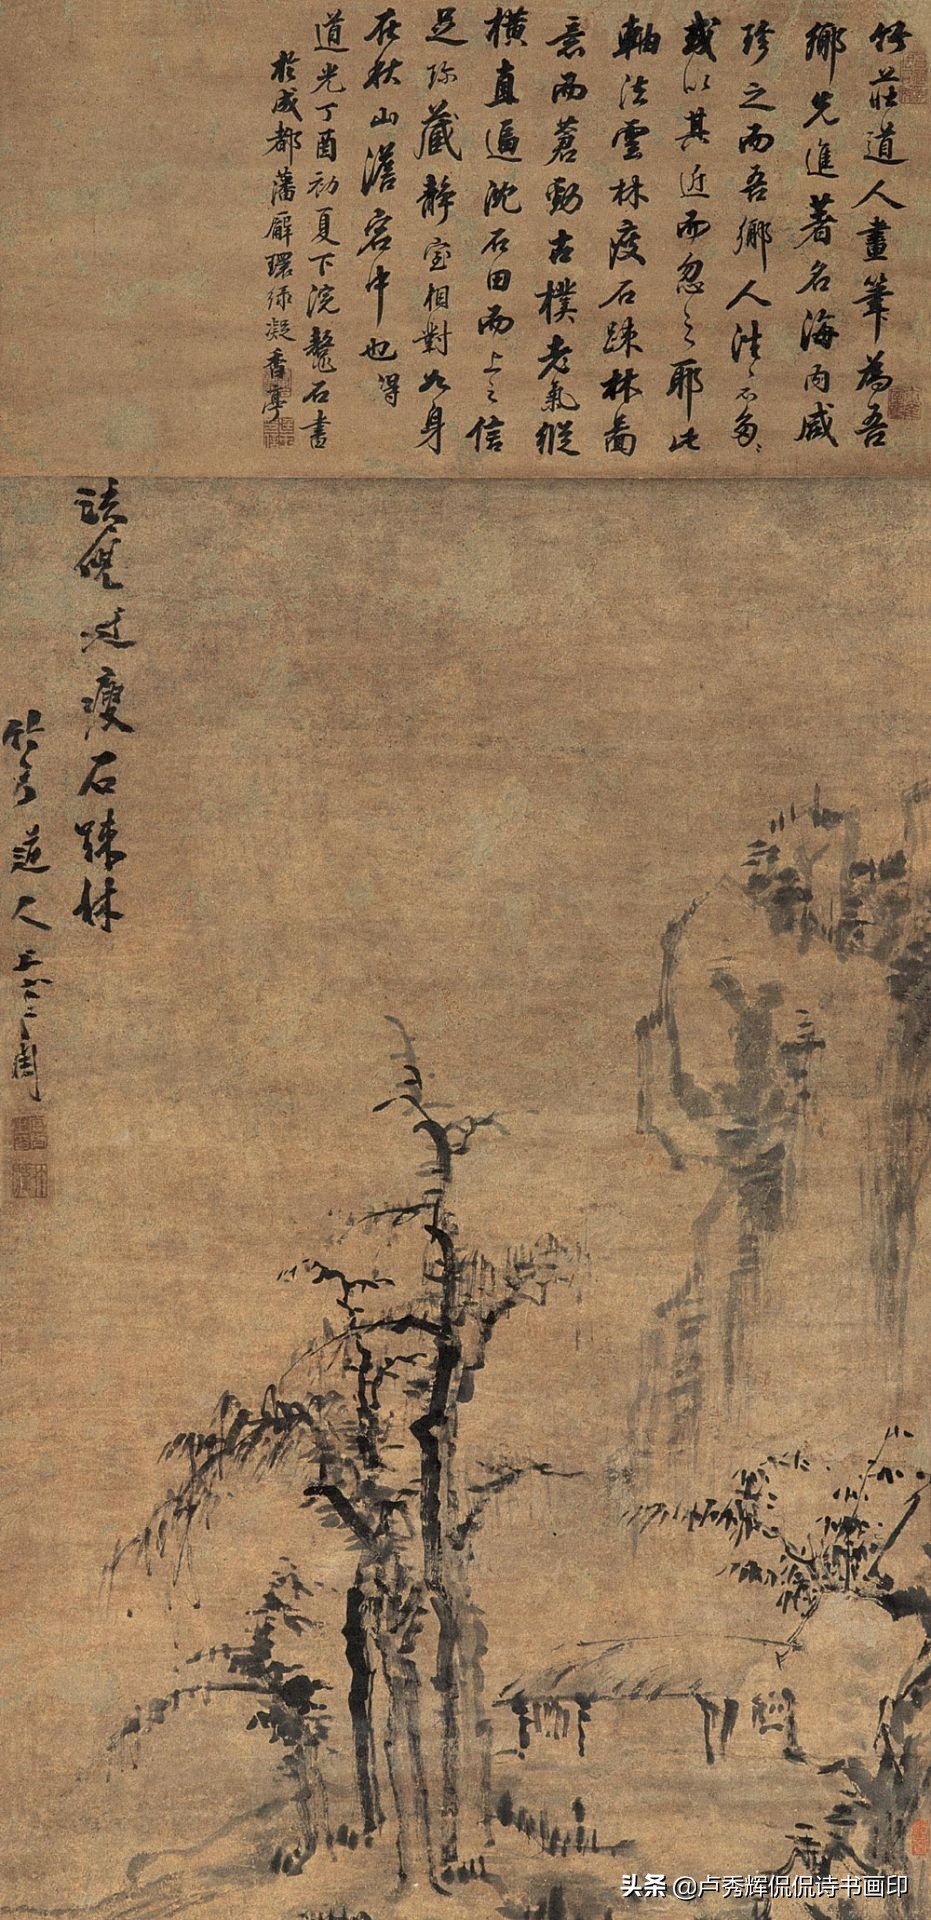 莊道人畫筆為吾
鄉先進著名海內咸
珍之而吾鄉人往々不多
或以其近而忽之耶此
軸法雲林瘦石疎林圖
意而蒼勁古樸老氣縱
橫直逼沈石田而上之信
足珍藏靜室相對如身
在秋山澹宕中也得
道光丁酉初夏下浣鼇石書
於成都藩廨環綠凝香亭
法倪迂瘦石疎林
道人
頭条 @卢秀辉侃侃诗书画印